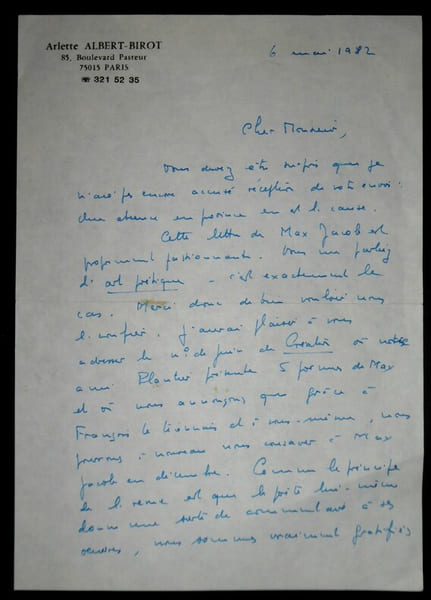 Arlette ALBERT-BIROT
85, Boulevard Pasteur
75015 PARIS
☎ 321 52 35
6 mai 1982
Cher Monsieur,
Vous devez être surpris que je
n'aie pas encore accusé réception de votre envoi :
une absence en province en est la cause.
Cette lettre de Max Jacob est
proprement passionnante. Vous me parlez
d'art poétique - c'est exactement le
cas. Merci donc de bien vouloir nous
la confier. J'aurai plaisir à vous
adresser le n° de juin de où notre
ami présente 5 poèmes de Max
et où nous annonçons que grâce à
François le Lionnais et à vous-même, nous
pouvons à nouveau nous consacrer à Max
Jacob en décembre. Comme le principe
de la revue est que le poète lui-même
donne une sorte de commentaire à ses
oeuvres, nous sommes vraiment gratifiés